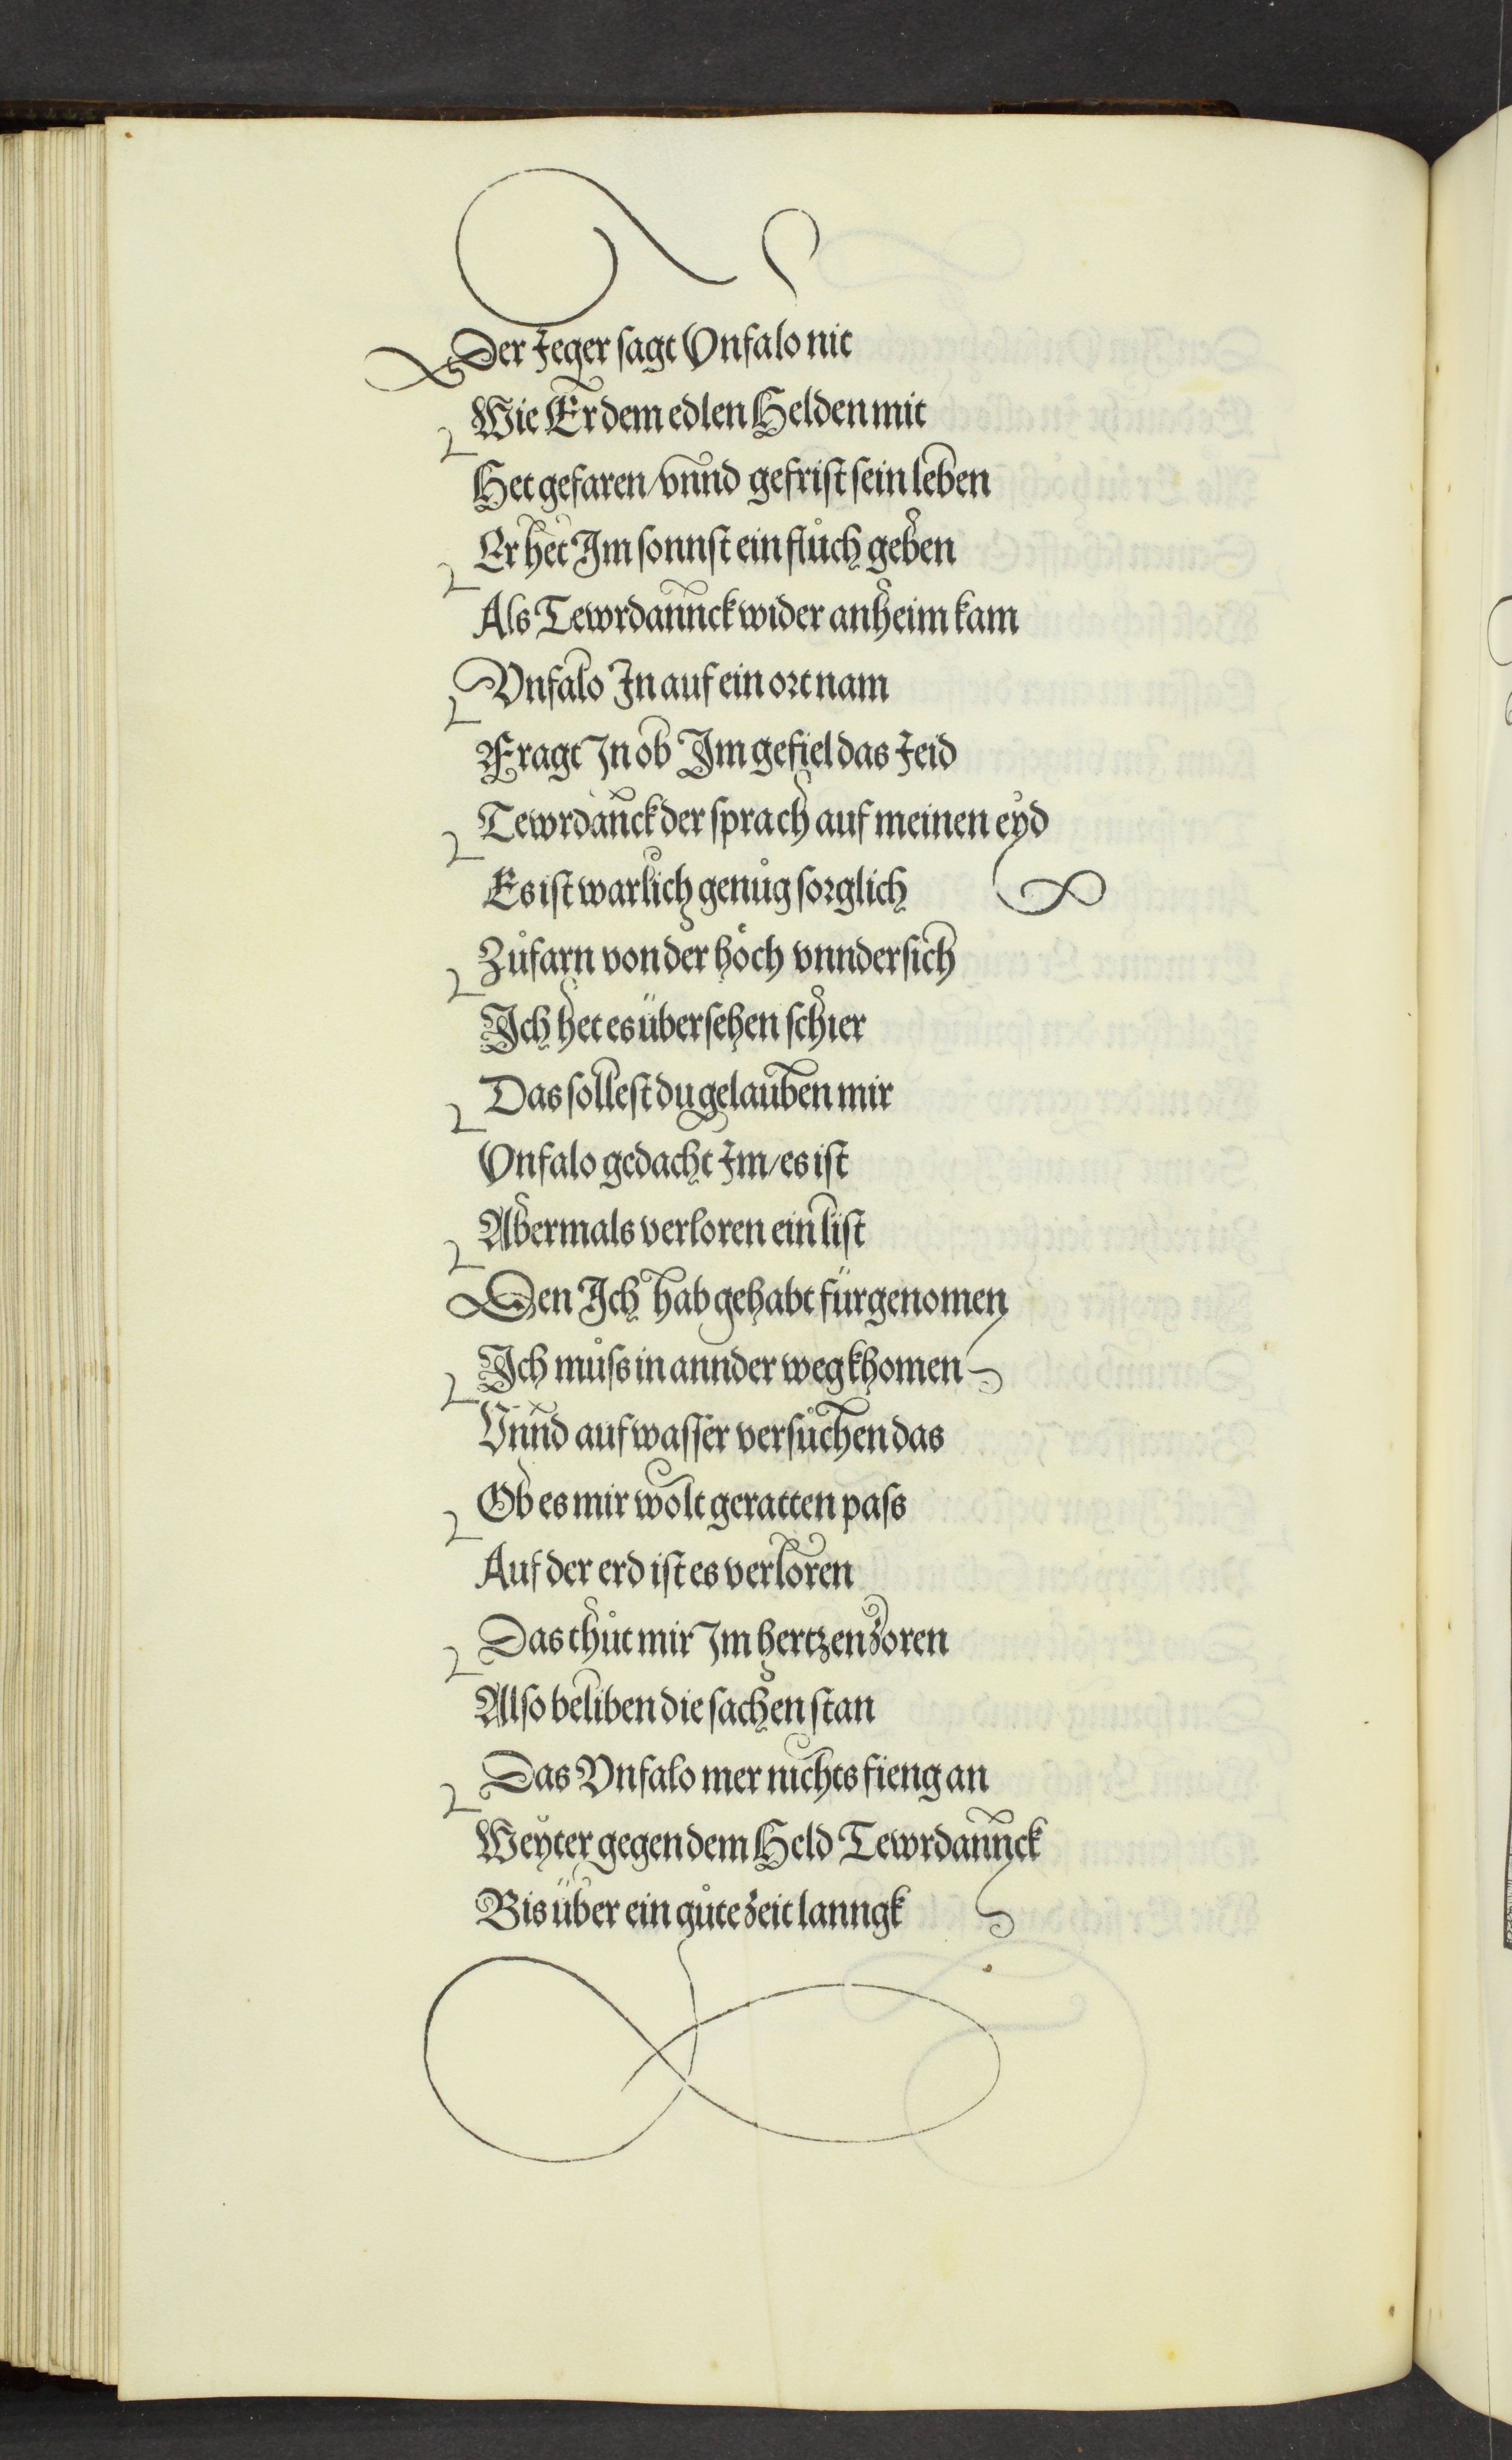 Der Jeger sagt Vnfalo nit
Wie Er dem edlen Helden mit
Het gefaren/vnnd gefrist sein leben
Er het Im sonnst ein flůch geben
Als Tewrdannck wider anheim kam
Vnfalo In auf ein ort nam
Fragt In ob Im gefiel das Jeid
Tewrdanck der sprach auf meinen eyd
Es ist warlich genůg sorglich
Zůfarn von der höch vnndersich
Ich het es übersehen schier
Das sollest du gelauben mir
Vnfalo gedacht Im/es ist
Abermals verloren ein list
Den Ich hab gehabt fürgenomen
Ich můss in annder weg khomen
Vnnd auf wasser versůchen das
Ob es mir wolt geratten pass
Auf der erd ist es verloren
Das thůt mir Im hertzen zoren
Also beliben die sachen stan
Das Vnfalo mer nichts fieng an
Weyter gegen dem Held Tewrdannck
Bis über ein gůte zeit lanngk